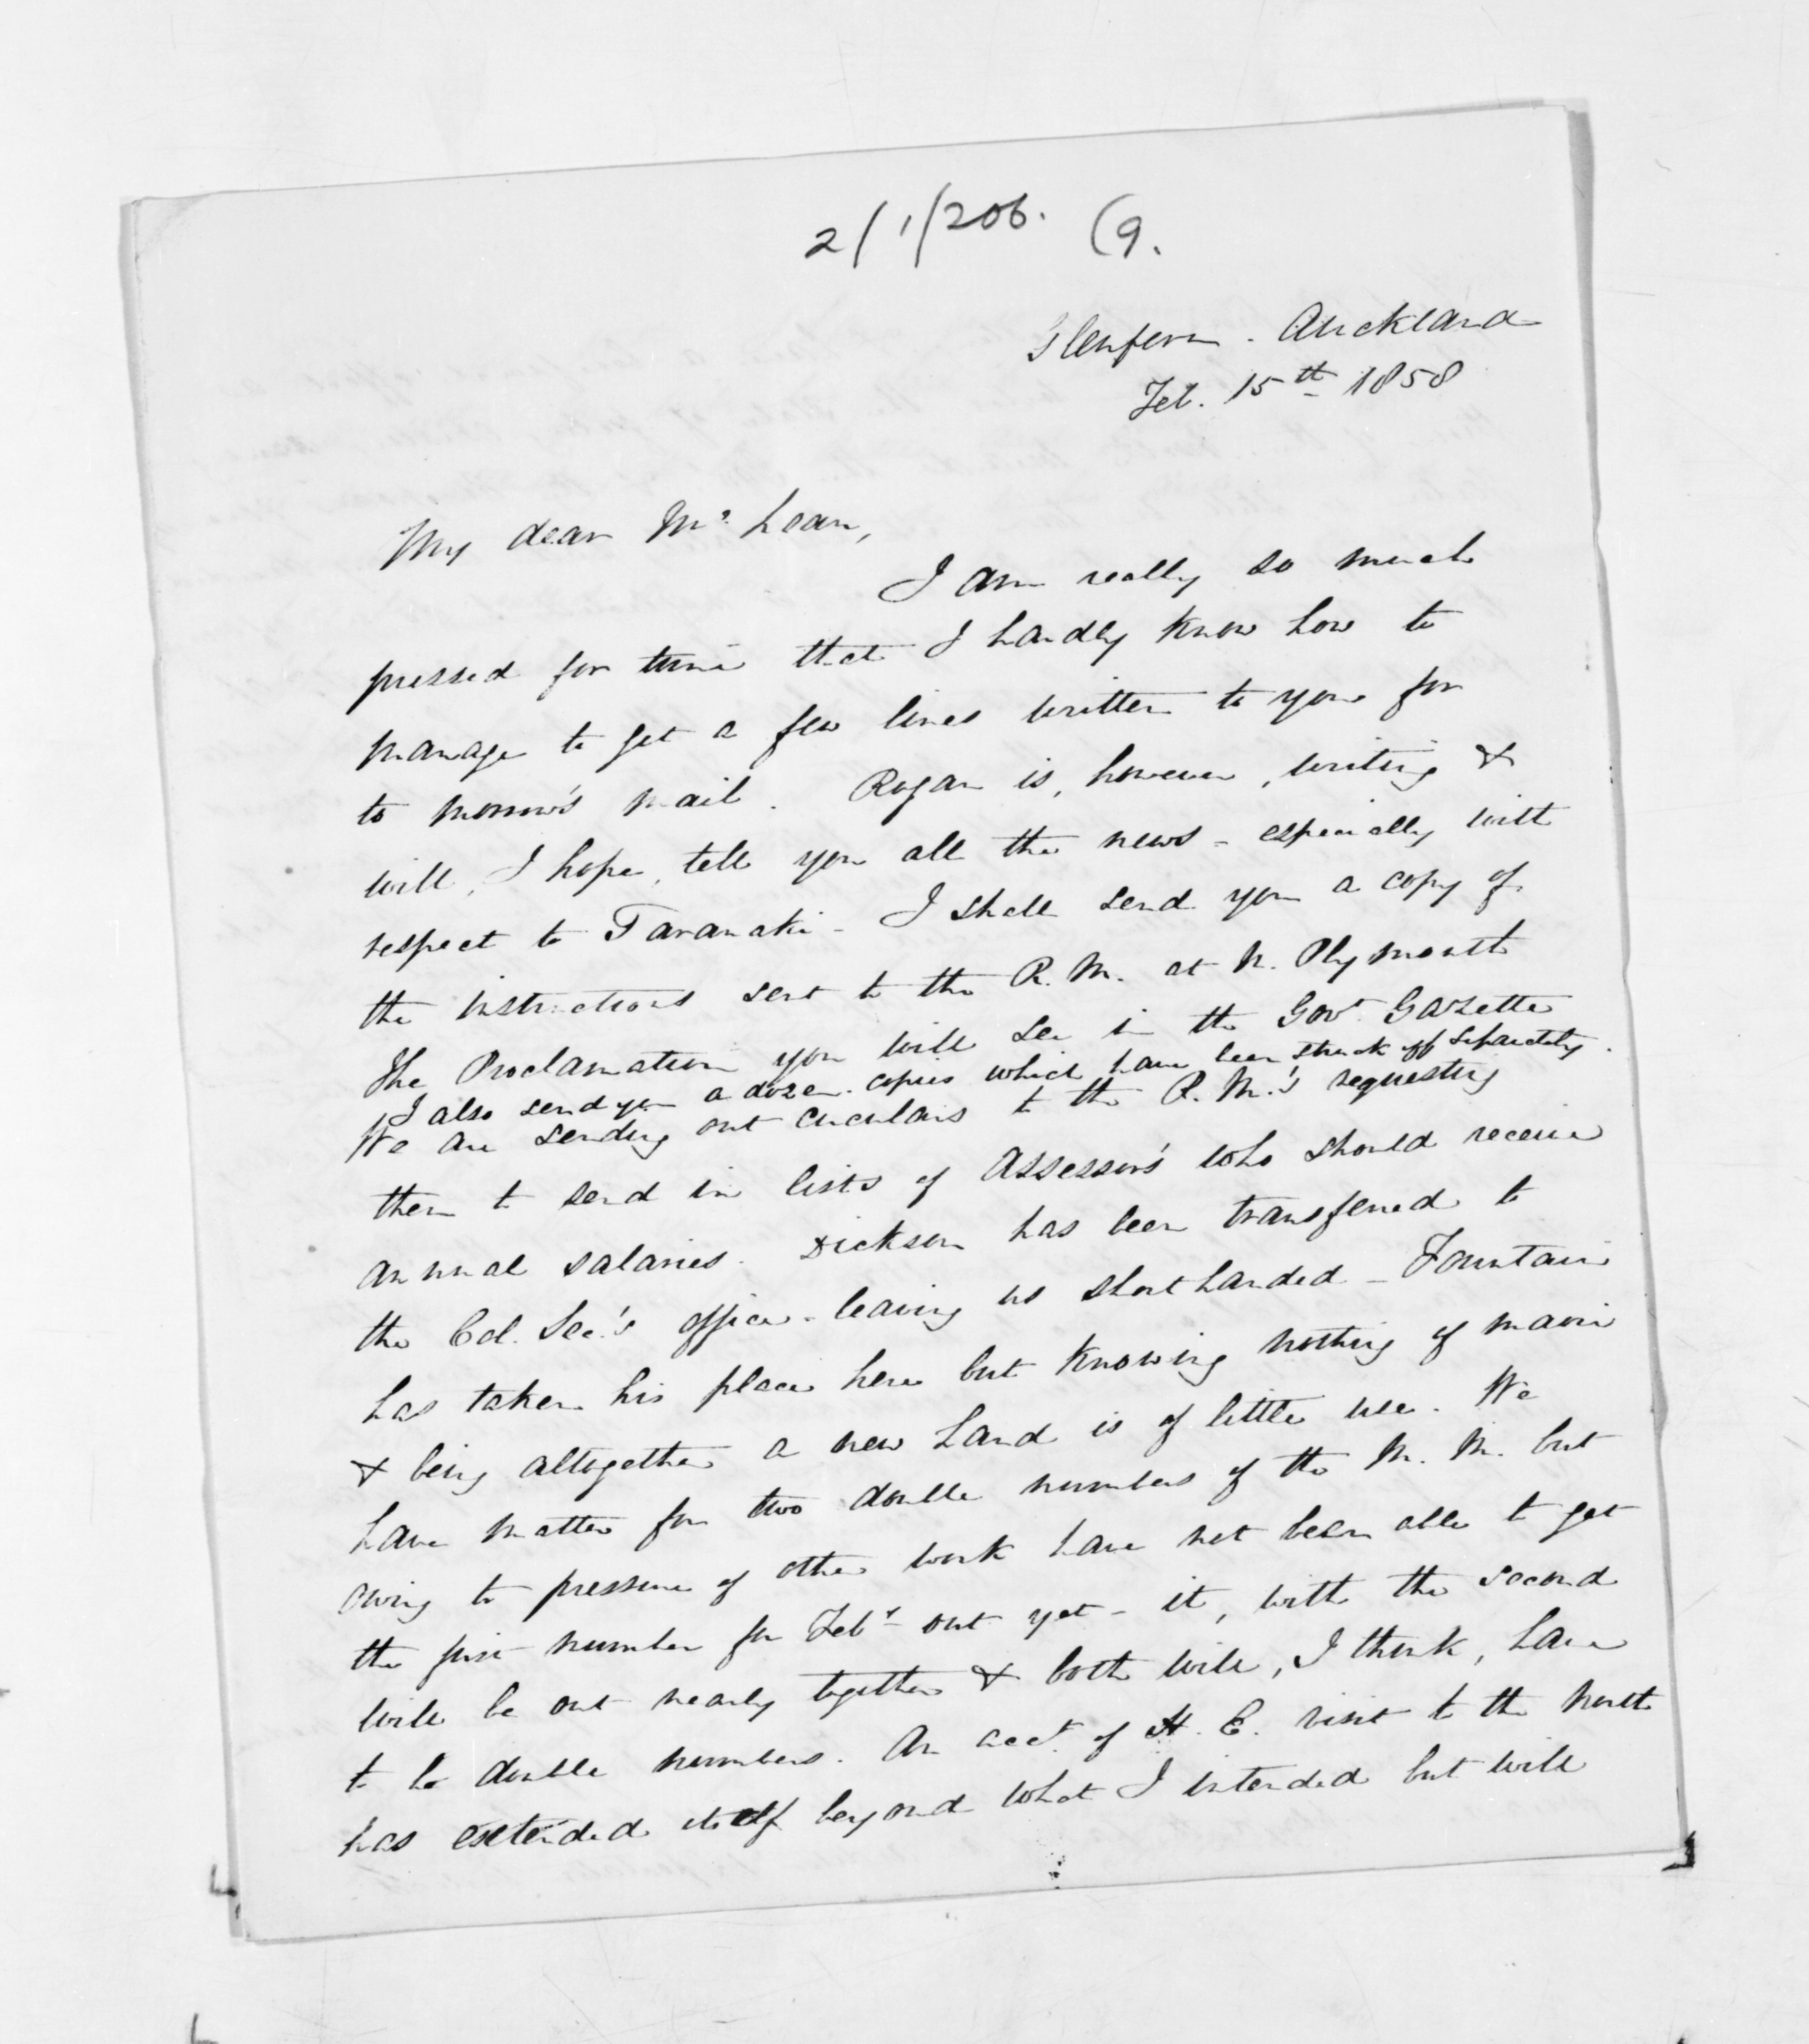 2/1/206. (9.
Glenfern. Auckland
Feb. 15th 1858
My dear Mc. Lean,
I am really so much
pressed for time that I hardly know how to
manage to get a few lines written to you for
to morrow's mail. Rogan is, however, writing &
will, I hope, tell you all the news - especially with
respect to Taranaki - I shall send you a copy of
the instructions sent to the R. M. at N. Plymouth
The Proclamation you will see in the Govt. Gazette
I also send you a dozen copies which have been struck off separately.
We are sending out circulars to the R. M.'s requesting
them to send in lists of Assessors who should receive
annual salaries. Dickson has been transferred to
the Col. Sec.'s office - leaving us shorthanded - Fountain
has taken his place here but knowing nothing of maori
& being altogether a new hand is of little use. We
have matter for two double numbers of the M. M. but
owing to pressure of other work have not been able to get
the first number for Feby out yet - it, with the second
will be out nearly together & both will, I think, have
to be double numbers. An acct. of H. E. visit to the North
has extended itself beyond what I intended but will